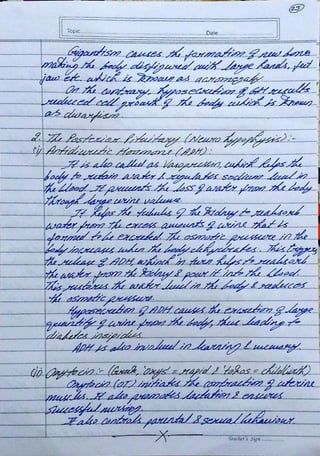 23
Topic Date
Gigantism causes the formation of new bone
making the body disfigured with large hands, feet
jaw etc. which is known as acromegaly
On the contrary, hyposecretion of GH results
reduced cell growth of the body which is known
as dwarfism.
2. The Posterior Pituitary (Neurohypophysis):-
(i) Antidiuretic Hormone (ADH):
It is also called as Vasopressin, which helps the
body to retain water & regulates sodium level in
the blood. It prevents the loss of water from the body
through large urine volume.
It helps the tubules of the kidney to reabsorb
water from the excess amounts of urine that is
formed to be excreted. The osmotic pressure in the
body increases when the body dehydrates. This triggers
the release of ADH, which in turn helps to reabsorb
the water from the kidney & pour it into the blood.
This restores the water level in the body & reduces
the osmotic pressure.
Hyposecretion of ADH causes the excretion of large
quantity of urine from the body, thus leading to
diabetes insipidus.
ADH is also involved in learning & memory.
(ii) Oxytocin:- (Greek; 'oxys' = rapid & 'tokos' = childbirth)
Oxytocin (OT) initiates the contraction of uterine
muscles. It also promotes lactation & ensures
successful nursing.
It also controls parental & sexual behaviour.
X
Teacher's Sign